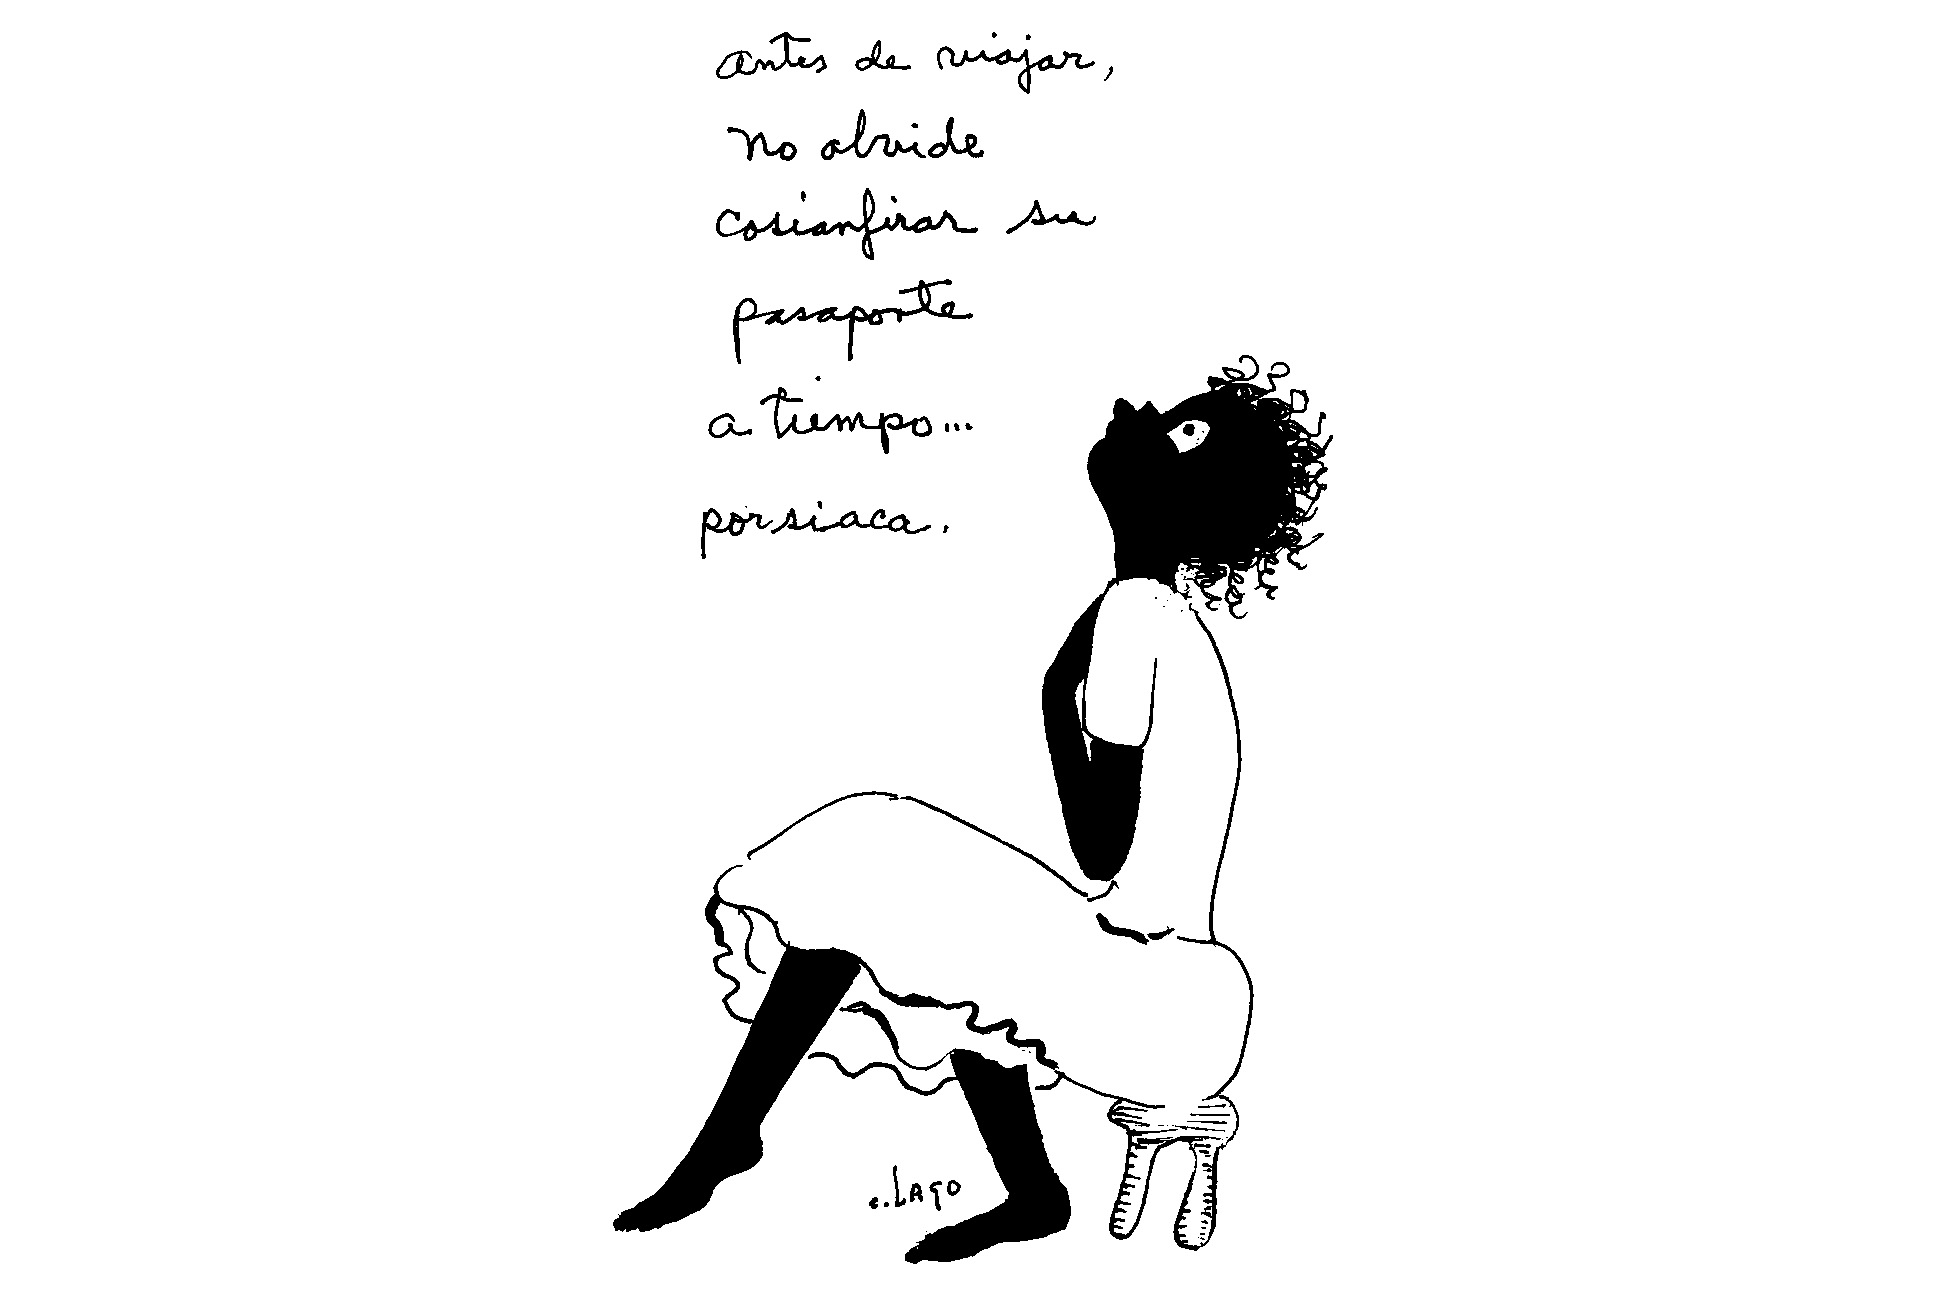 antes de viajar,
no olvide
cosianfirar su
pasaporte
a tiempo...
porsiaca.
c. Lago